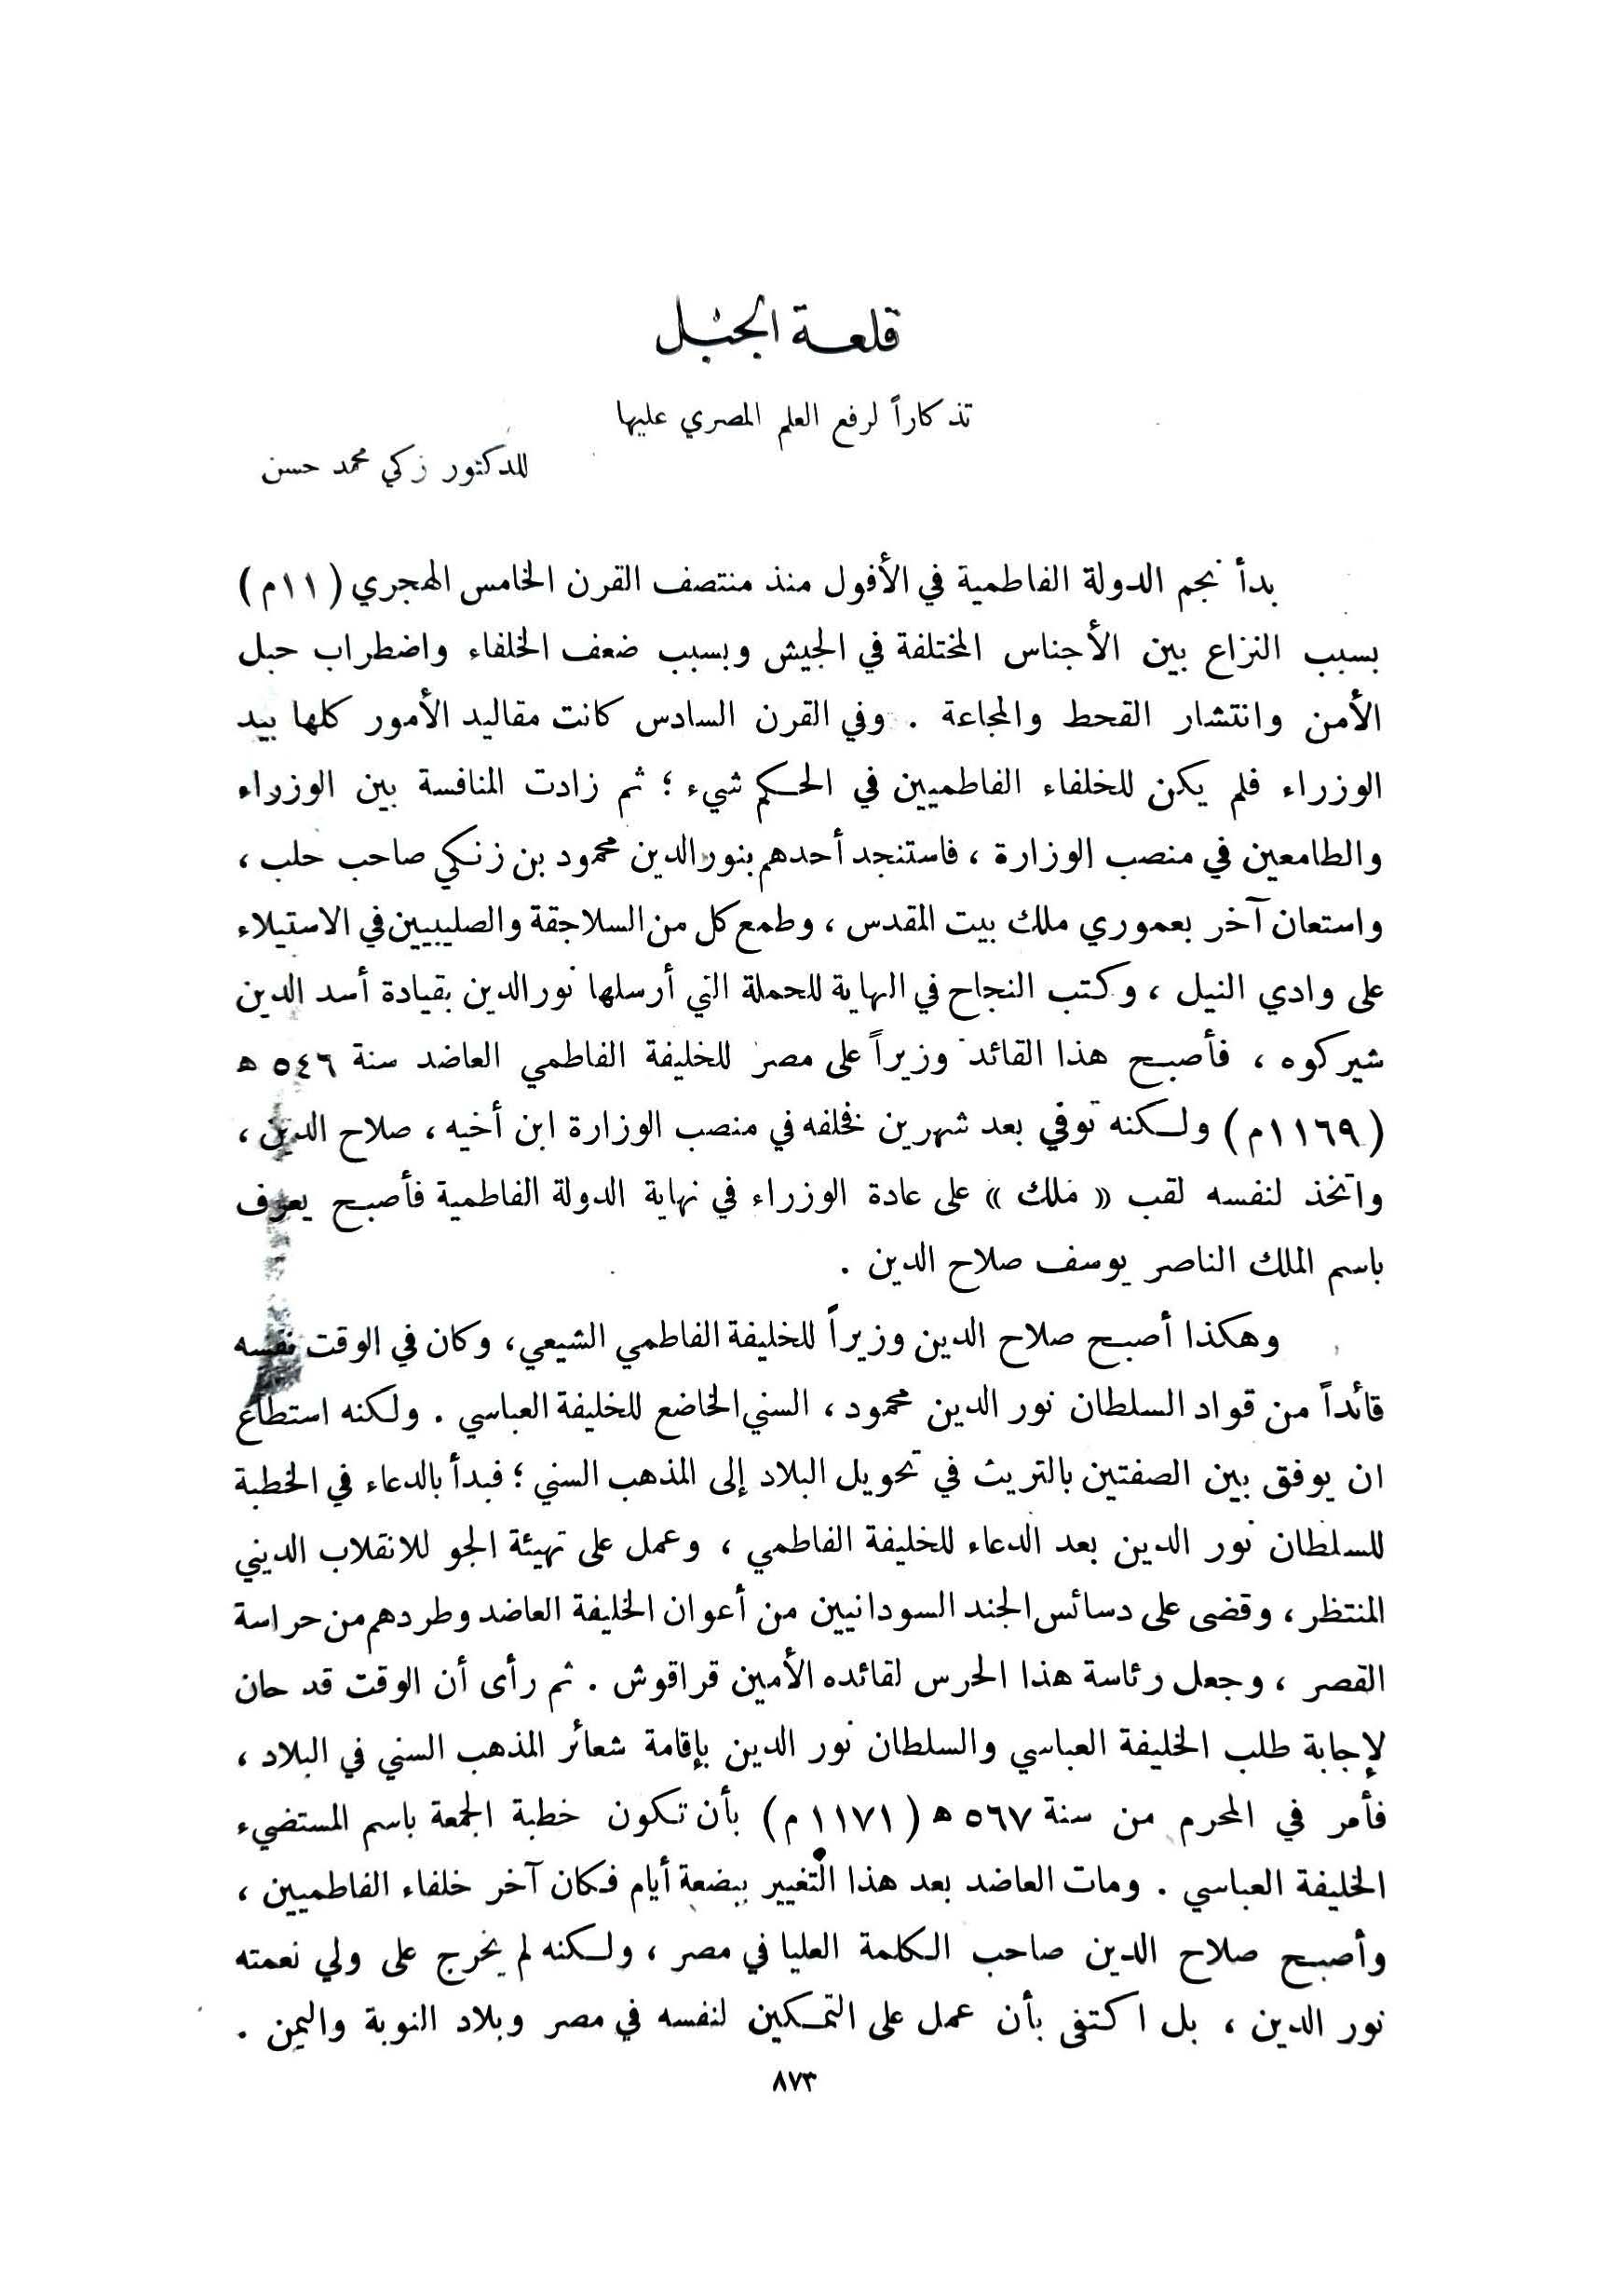 قلعة الجبل
تذكاراً لرفع العلم المصري عليها
للدكتور زكي محمد حسن
بدأ نجم الدولة الفاطمية في الأفول منذ منتصف القرن الخامس الهجري (١١م)
بسبب النزاع بين الأجناس المختلفة في الجيش وبسبب ضعف الخلفاء واضطراب حبل
الأمن وانتشار القحط والمجاعة . وفي القرن السادس كانت مقاليد الأمور كلها بيد
الوزراء فلم يكن للخلفاء الفاطميين في الحكم شيء ؛ ثم زادت المنافسة بين الوزراء
والطامعين في منصب الوزارة ، فاستنجد أحدهم بنور الدين محمود بن زنكي صاحب حلب ،
واستعان آخر بعموري ملك بيت المقدس ، وطمع كل من السلاجقة والصليبيين في الاستيلاء
على وادي النيل ، وكتب النجاح في النهاية للحملة التي أرسلها نور الدين بقيادة أسد الدين
شيركوه ، فأصبح هذا القائد وزيراً على مصر للخليفة الفاطمي العاضد سنة ٥٤٦ ه
(١١٦٩م) ولكنه توفي بعد شهرين فخلفه في منصب الوزارة ابن أخيه ، صلاح الدين ،
واتخذ لنفسه لقب « ملك » على عادة الوزراء في نهاية الدولة الفاطمية فأصبح يعرف
باسم الملك الناصر يوسف صلاح الدين .
وهكذا أصبح صلاح الدين وزيراً للخليفة الفاطمي الشيعي ، وكان في الوقت نفسه
قائداً من قواد السلطان نور الدين محمود ، السني الخاضع للخليفة العباسي . ولكنه استطاع
ان يوفق بين الصفتين بالتريث في تحويل البلاد إلى المذهب السني ؛ فبدأ بالدعاء في الخطبة
للسلطان نور الدين بعد الدعاء للخليفة الفاطمي ، وعمل على تهيئة الجو للانقلاب الديني
المنتظر ، وقضى على دسائس الجند السودانيين من أعوان الخليفة العاضد وطردهم من حراسة
القصر ، وجعل رئاسة هذا الحرس لقائده الأمين قراقوش . ثم رأى أن الوقت قد حان
لإجابة طلب الخليفة العباسي والسلطان نور الدين بإقامة شعائر المذهب السني في البلاد ،
فأمر في المحرم من سنة ٥٦٧ ه (١١٧١م) بأن تكون خطبة الجمعة باسم المستضيء
الخليفة العباسي . ومات العاضد بعد هذا التغيير ببضعة أيام فكان آخر خلفاء الفاطميين ،
وأصبح صلاح الدين صاحب الكلمة العليا في مصر ، ولكنه لم يخرج على ولي نعمته
نور الدين ، بل اكتفى بأن عمل على التمكين لنفسه في مصر وبلاد النوبة واليمن .
٨٧٣